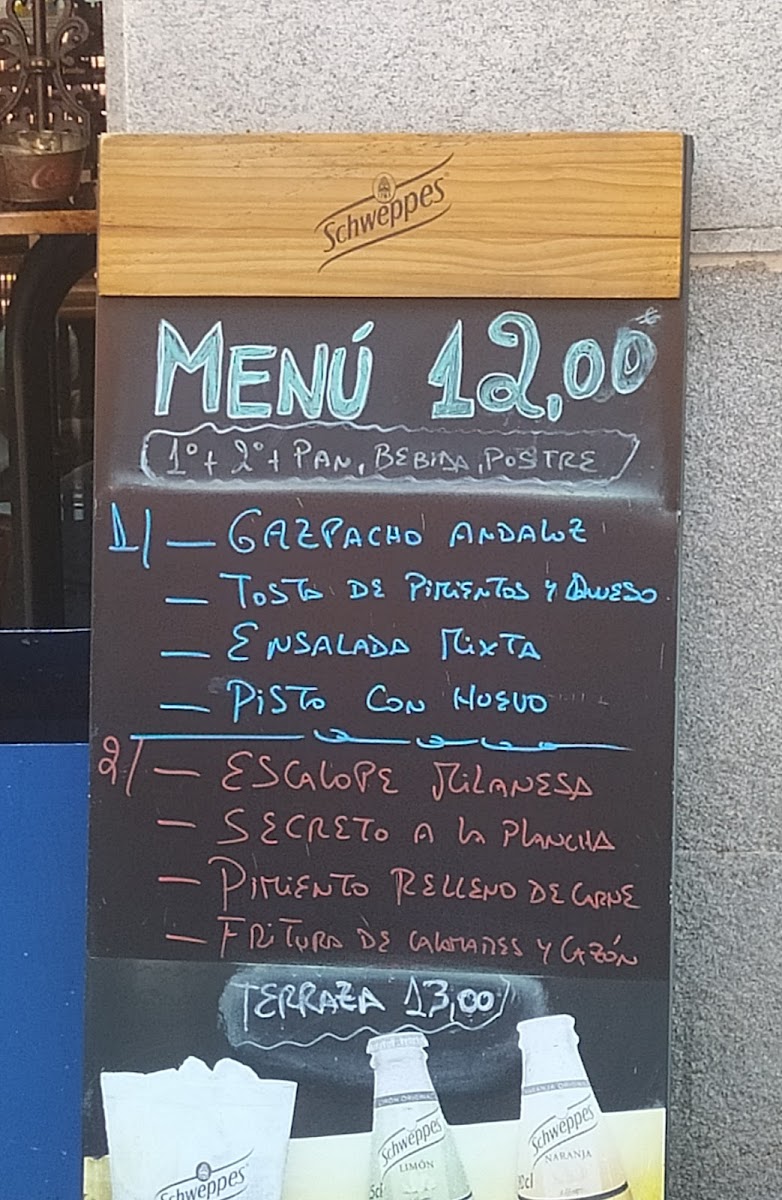 Schweppes
MENÚ 12,00
1º + 2º + PAN, BEBIDA, POSTRE
1/ — GAZPACHO ANDALUZ
— TOSTA DE PIMIENTOS Y QUESO
— ENSALADA MIXTA
— PISTO CON HUEVO
2/ — ESCALOPE MILANESA
— SECRETO A LA PLANCHA
— PIMIENTO RELLENO DE CARNE
— FRITURA DE CALAMARES Y CAZÓN
TERRAZA 13,00
LIMÓN ORIGINAL
NARANJA ORIGINAL
Schweppes
LIMÓN
Schweppes
NARANJA
Schweppes